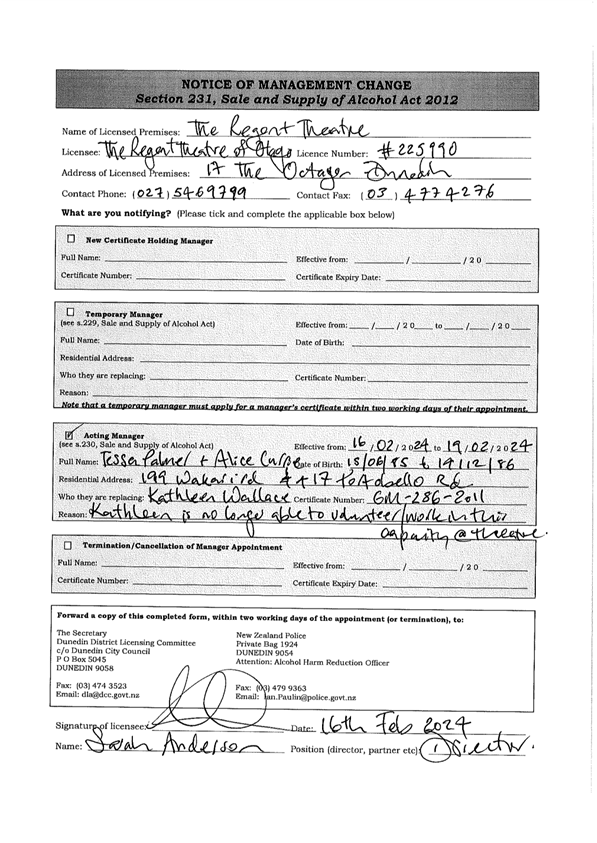 NOTICE OF MANAGEMENT CHANGE
Section 231, Sale and Supply of Alcohol Act 2012
Name of Licensed Premises: The Regent Theatre
Licensee: The Regent Theatre of Otago Licence Number: #225990
Address of Licensed Premises: 17 The Octagon Dunedin
Contact Phone: (027) 5469799 Contact Fax: (03) 4774276
What are you notifying? (Please tick and complete the applicable box below)
New Certificate Holding Manager
Full Name: Effective from: / / 20
Certificate Number: Certificate Expiry Date:
Temporary Manager
(see s.229, Sale and Supply of Alcohol Act) Effective from: / / 20 to / / 20
Full Name: Date of Birth:
Residential Address:
Who they are replacing: Certificate Number:
Reason:
Note that a temporary manager must apply for a manager's certificate within two working days of their appointment.
Acting Manager
(see s.230, Sale and Supply of Alcohol Act) Effective from: 16/02/2024 to 19/02/2024
Full Name: Tessa Palmer + Alice Date of Birth: 15/06/85 + 19/12/86
Residential Address: 199 Wakari rd + 417 Rd
Who they are replacing: Kathleen Wallace Certificate Number: GM-286-2011
Reason: Kathleen is no longer able to volunteer/work in this
capacity @ theatre.
Termination/Cancellation of Manager Appointment
Full Name: Effective from: / / 20
Certificate Number: Certificate Expiry Date:
Forward a copy of this completed form, within two working days of the appointment (or termination), to:
The Secretary
Dunedin District Licensing Committee
c/o Dunedin City Council
P O Box 5045
DUNEDIN 9058
Fax: (03) 474 3523
Email: dla@dcc.govt.nz
New Zealand Police
Private Bag 1924
DUNEDIN 9054
Attention: Alcohol Harm Reduction Officer
Fax: (03) 479 9363
Email: Ian.Paulin@police.govt.nz
Signature of licensee: Date: 16th Feb 2024
Name: Sarah Anderson Position (director, partner etc): Director.